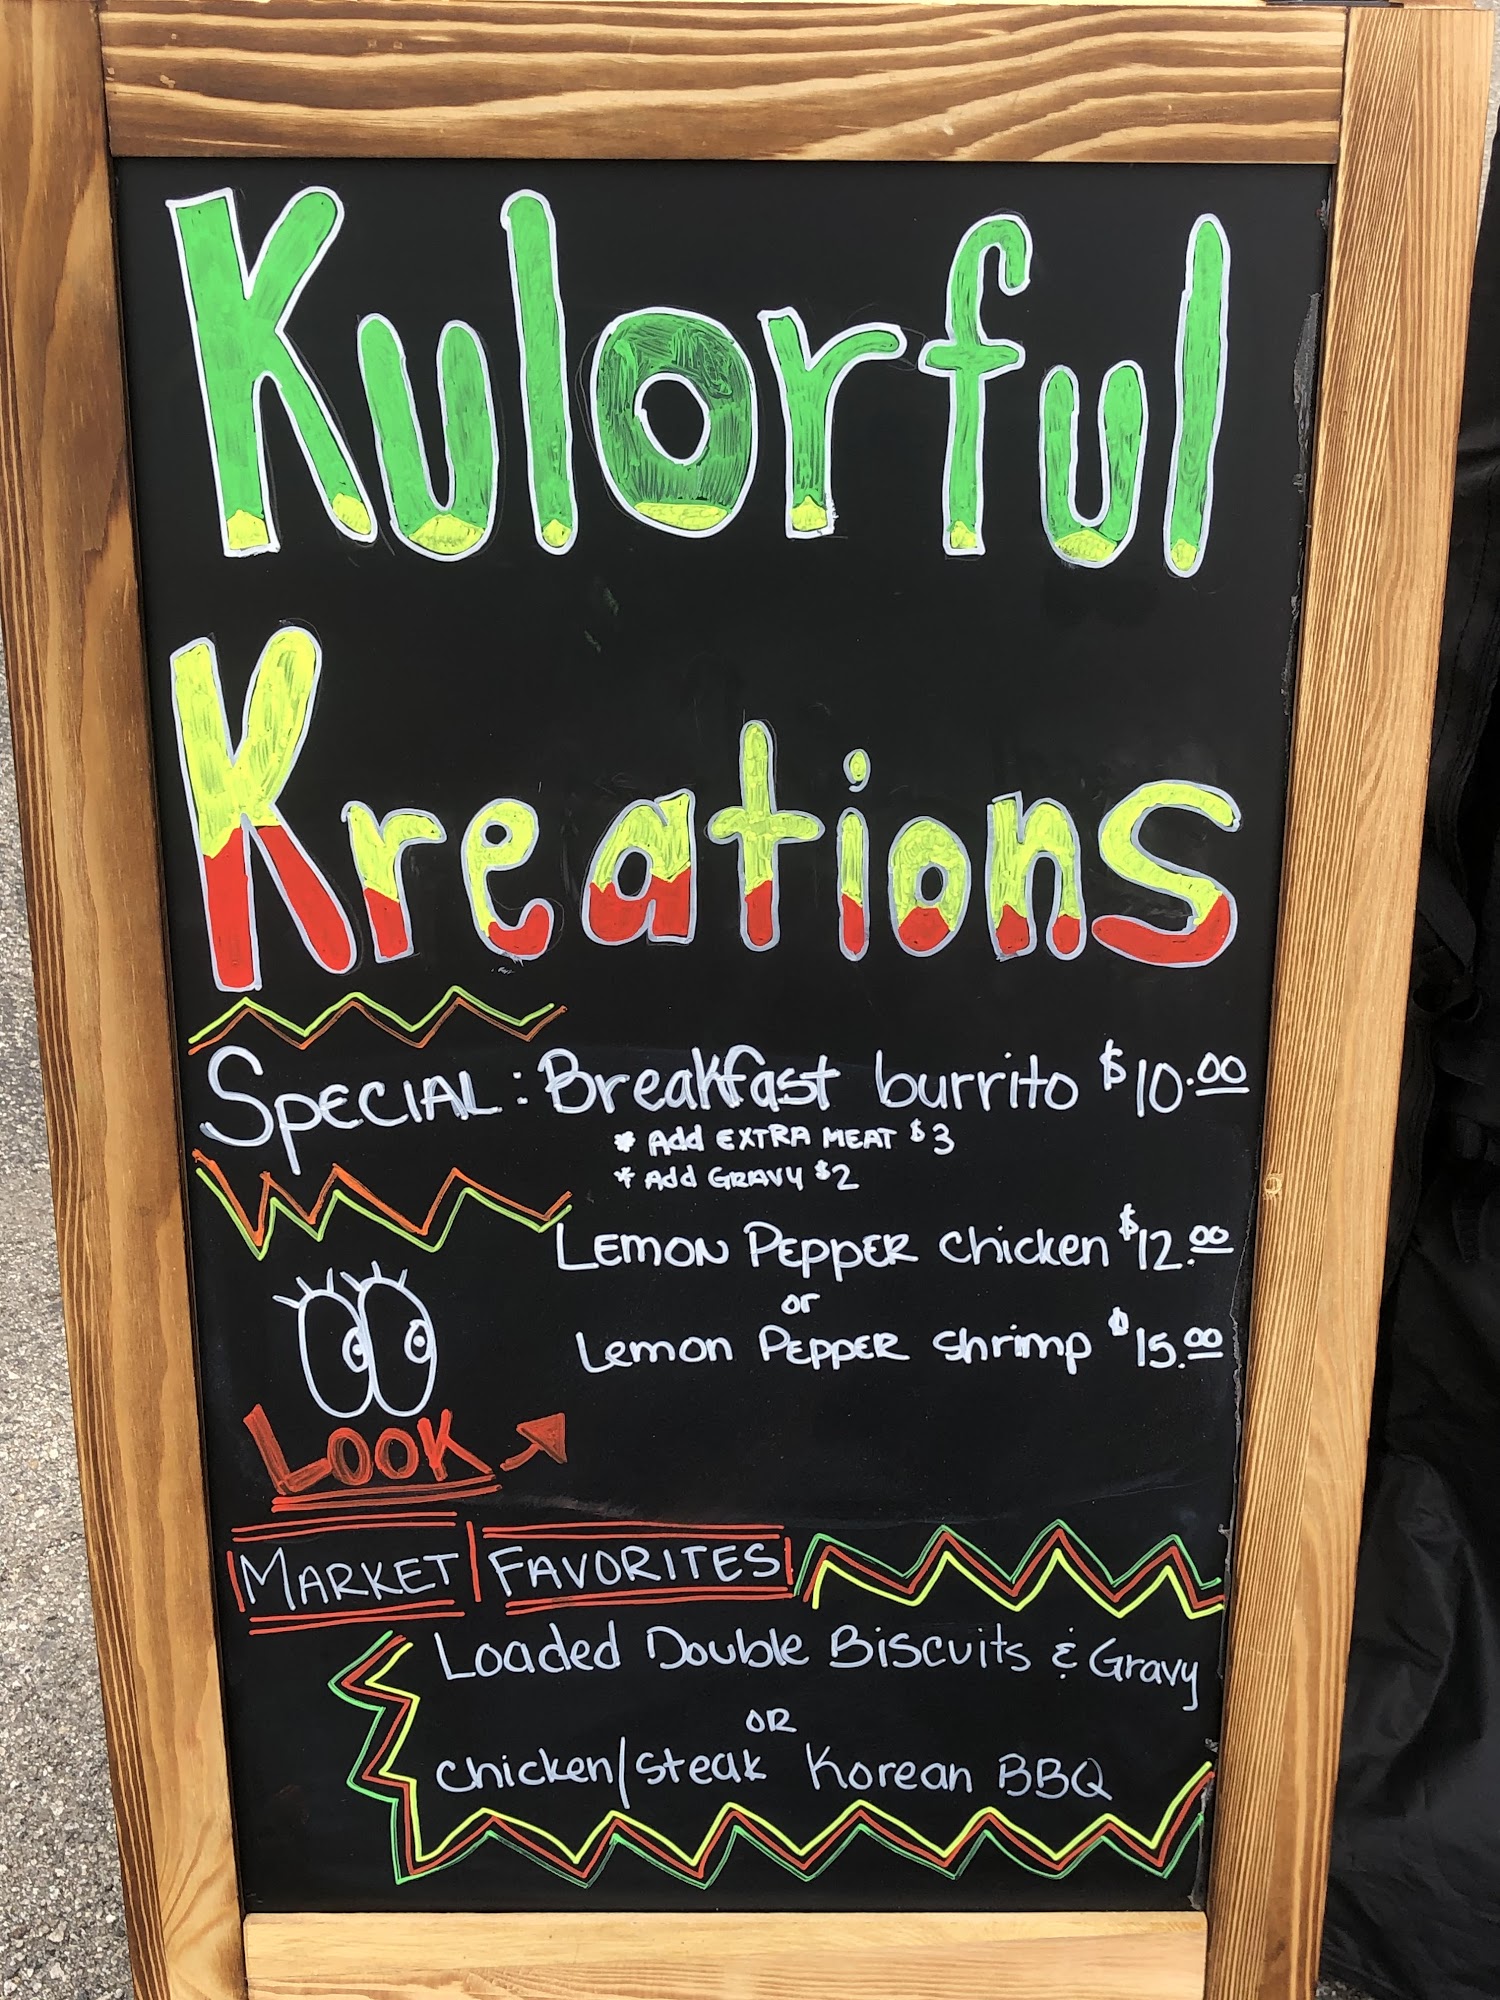 Kulorful
Kreations
SPECIAL: Breakfast burrito $10.00
* Add EXTRA MEAT $3
* Add GRAVY $2
LEMON PEPPER chicken $12.00
or
Lemon PEPPER shrimp $15.00
LOOK
MARKET FAVORITES
Loaded Double Biscuits & Gravy
OR
chicken/steak Korean BBQ